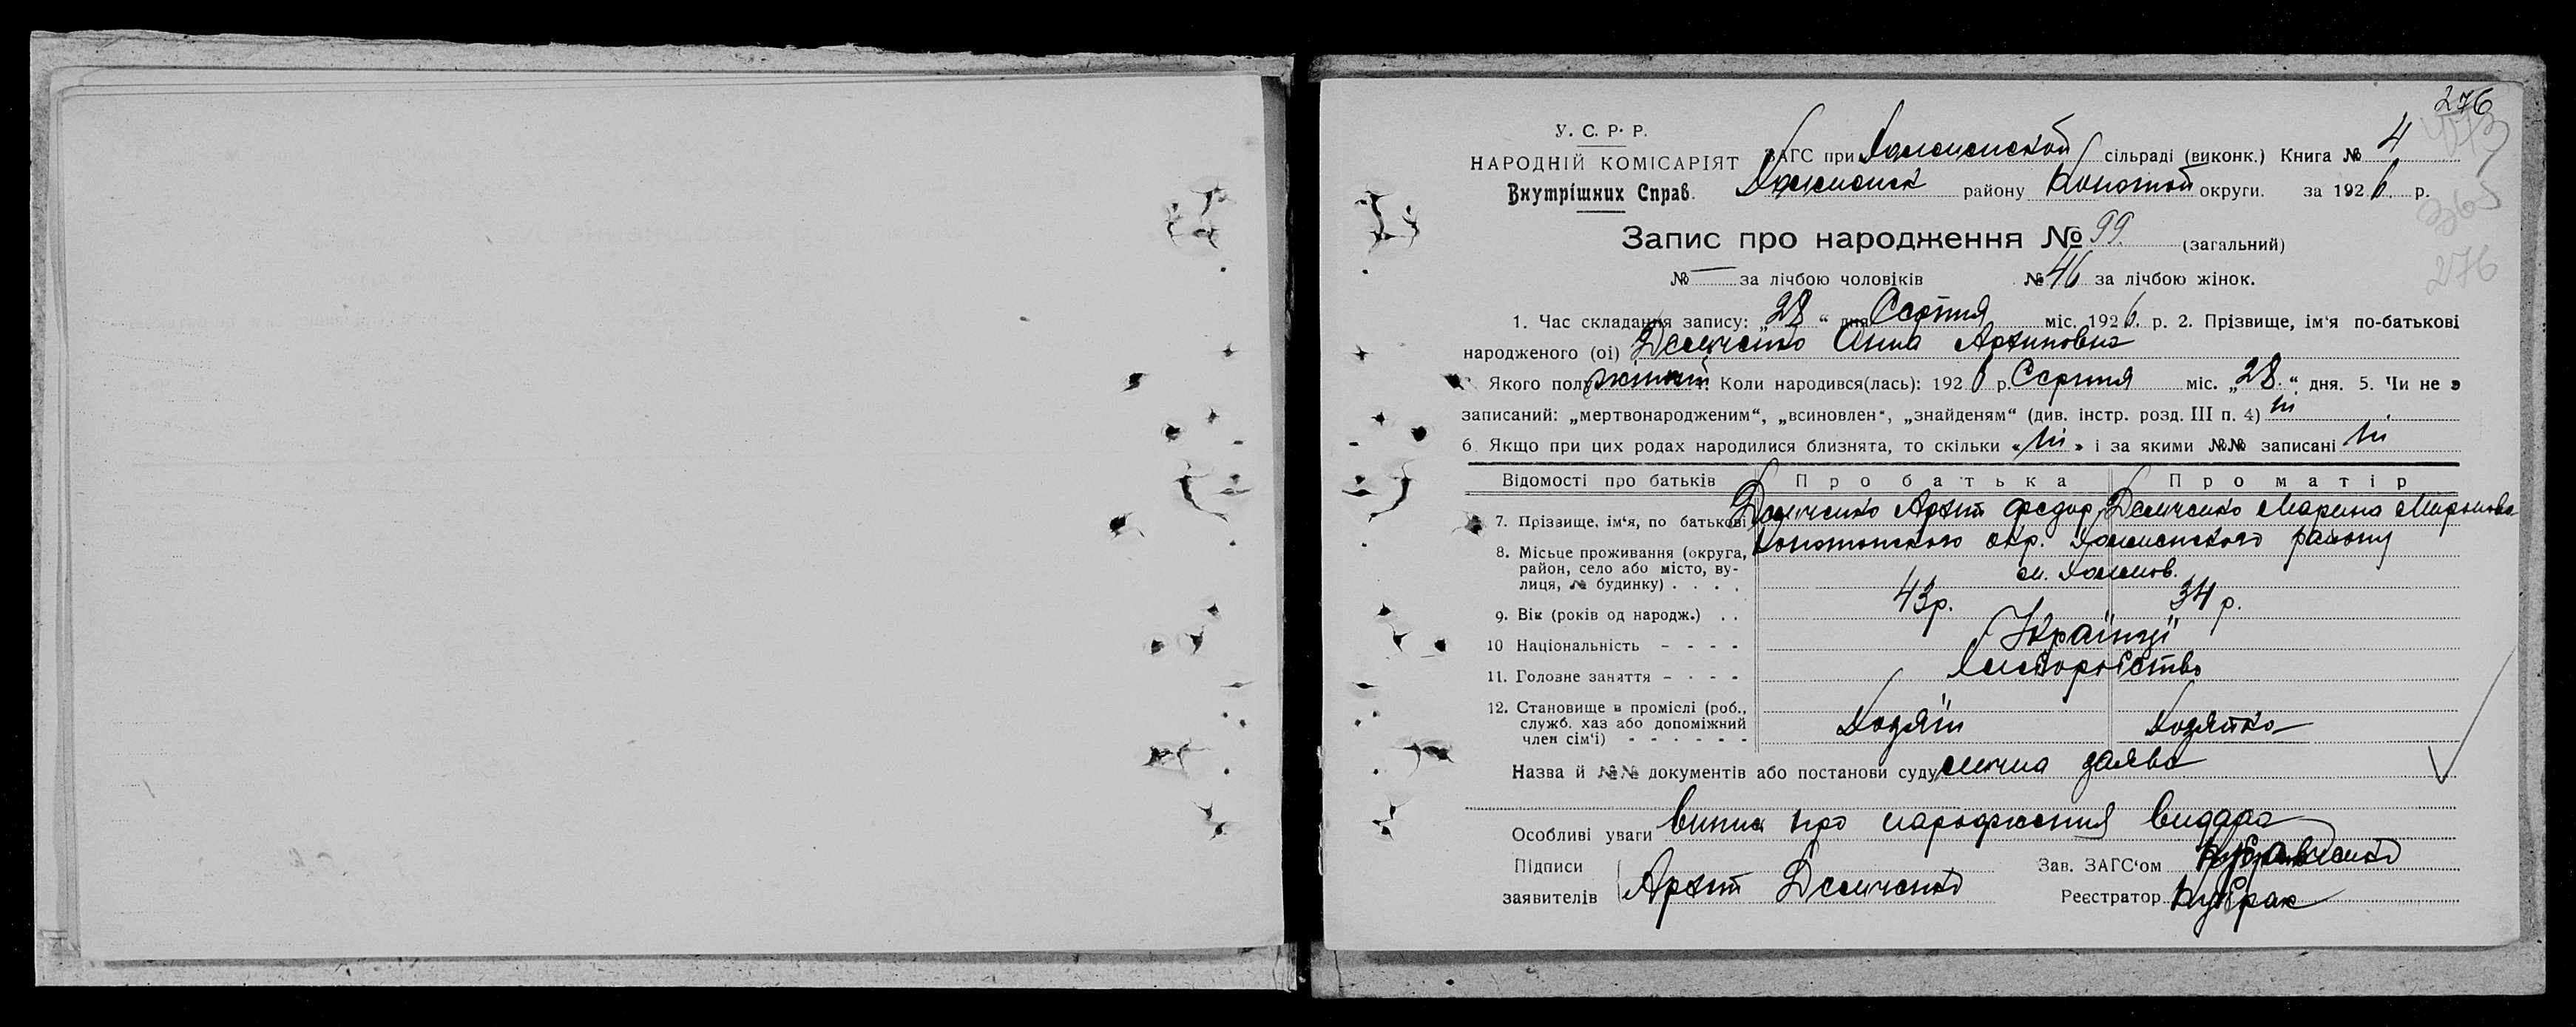 276
У. С. Р. Р.
НАРОДНІЙ КОМІСАРІЯТ ЗАГС при сільраді (виконк.) Книга № 4
Внутрішних Справ. району Конотоп округи. за 1926 р.
365
Запис про народження № 99. (загальний)
276
№ — за лічбою чоловіків № 46 за лічбою жінок.
1. Час складання запису: „28“ дня Серпня міс. 1926. р. 2. Прізвище, ім'я по-батькові
народженого (ої) Демченко Анна Архиповна
Якого полу жіночий Коли народився(лась): 1926 р. Серпня міс. „28.“ дня. 5. Чи не э
записаний: „мертвонародженим“, „всиновлен“, „знайденям“ (див. інстр. розд. III п. 4) ні
6. Якщо при цих родах народилися близнята, то скільки «ні» і за якими №№ записані ні
Відомості про батьків Про батька Про матір
7. Прізвище, ім'я, по батькові Демченко Архип Федор. Демченко Марина Миронова
8. Місьце проживання (округа, район, село або місто, вулиця, № будинку) . . . . Конотопского окр. району
9. Вік (років од народж.) . . 43р. 34 р.
10 Національність - - - - Українці
11. Головне заняття - - - - Хліборобство
12. Становище в проміслі (роб., служб. хаз або допоміжний член сім'ї) - - - - - - Хозяїн Хозяйка
Назва й №№ документів або постанови суду лична заява
Особливі уваги Випис про народження видара
Підписи Зав. ЗАГС'ом
заявителів Архип Демченко Реєстратор Кубрак